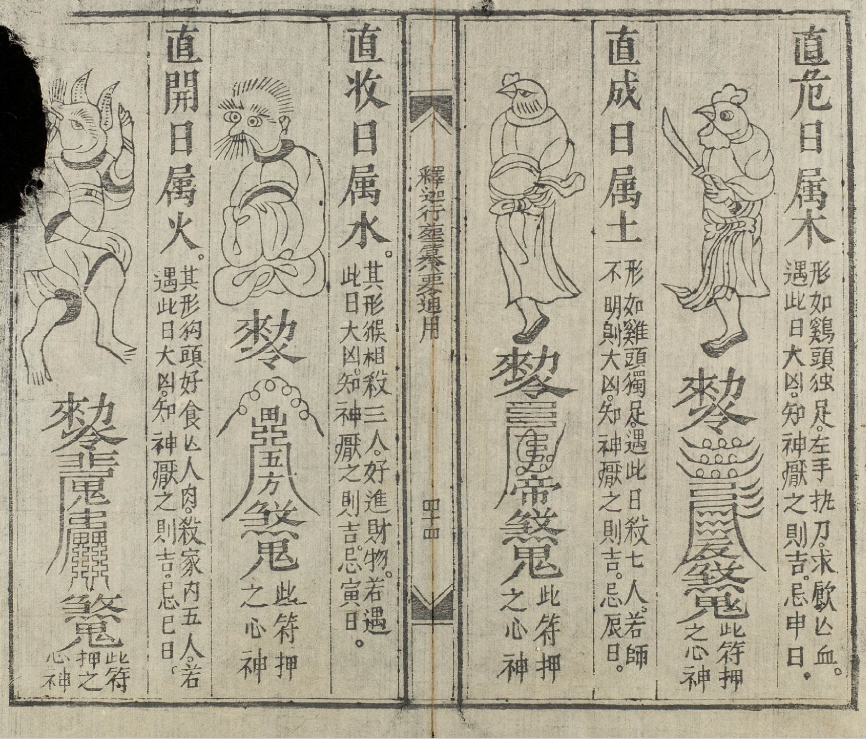 直危日属木
形如鷄頭独足。左手执刀。求歐亾血。
遇此日大凶。知神厭之則吉。忌申日。
勑
煞鬼
此符押
之心神
直成日属土
形如雞頭獨足。遇此日殺七人。若師
不明則大凶。知神厭之則吉。忌辰日。
勑
帝煞鬼
此符押
之心神
釋迦行塟纂要通用
四十四
直收日属水。
其形猴相殺三人。好進財物。若遇
此日大凶。知神厭之則吉。忌寅日。
勑
五方
煞鬼
此符押
之心神
直開日属火。
其形狗頭好食亾人肉。殺家內五人。若
遇此日大凶。知神厭之則吉。忌巳日。
勑
煞鬼
此符
押之
心神